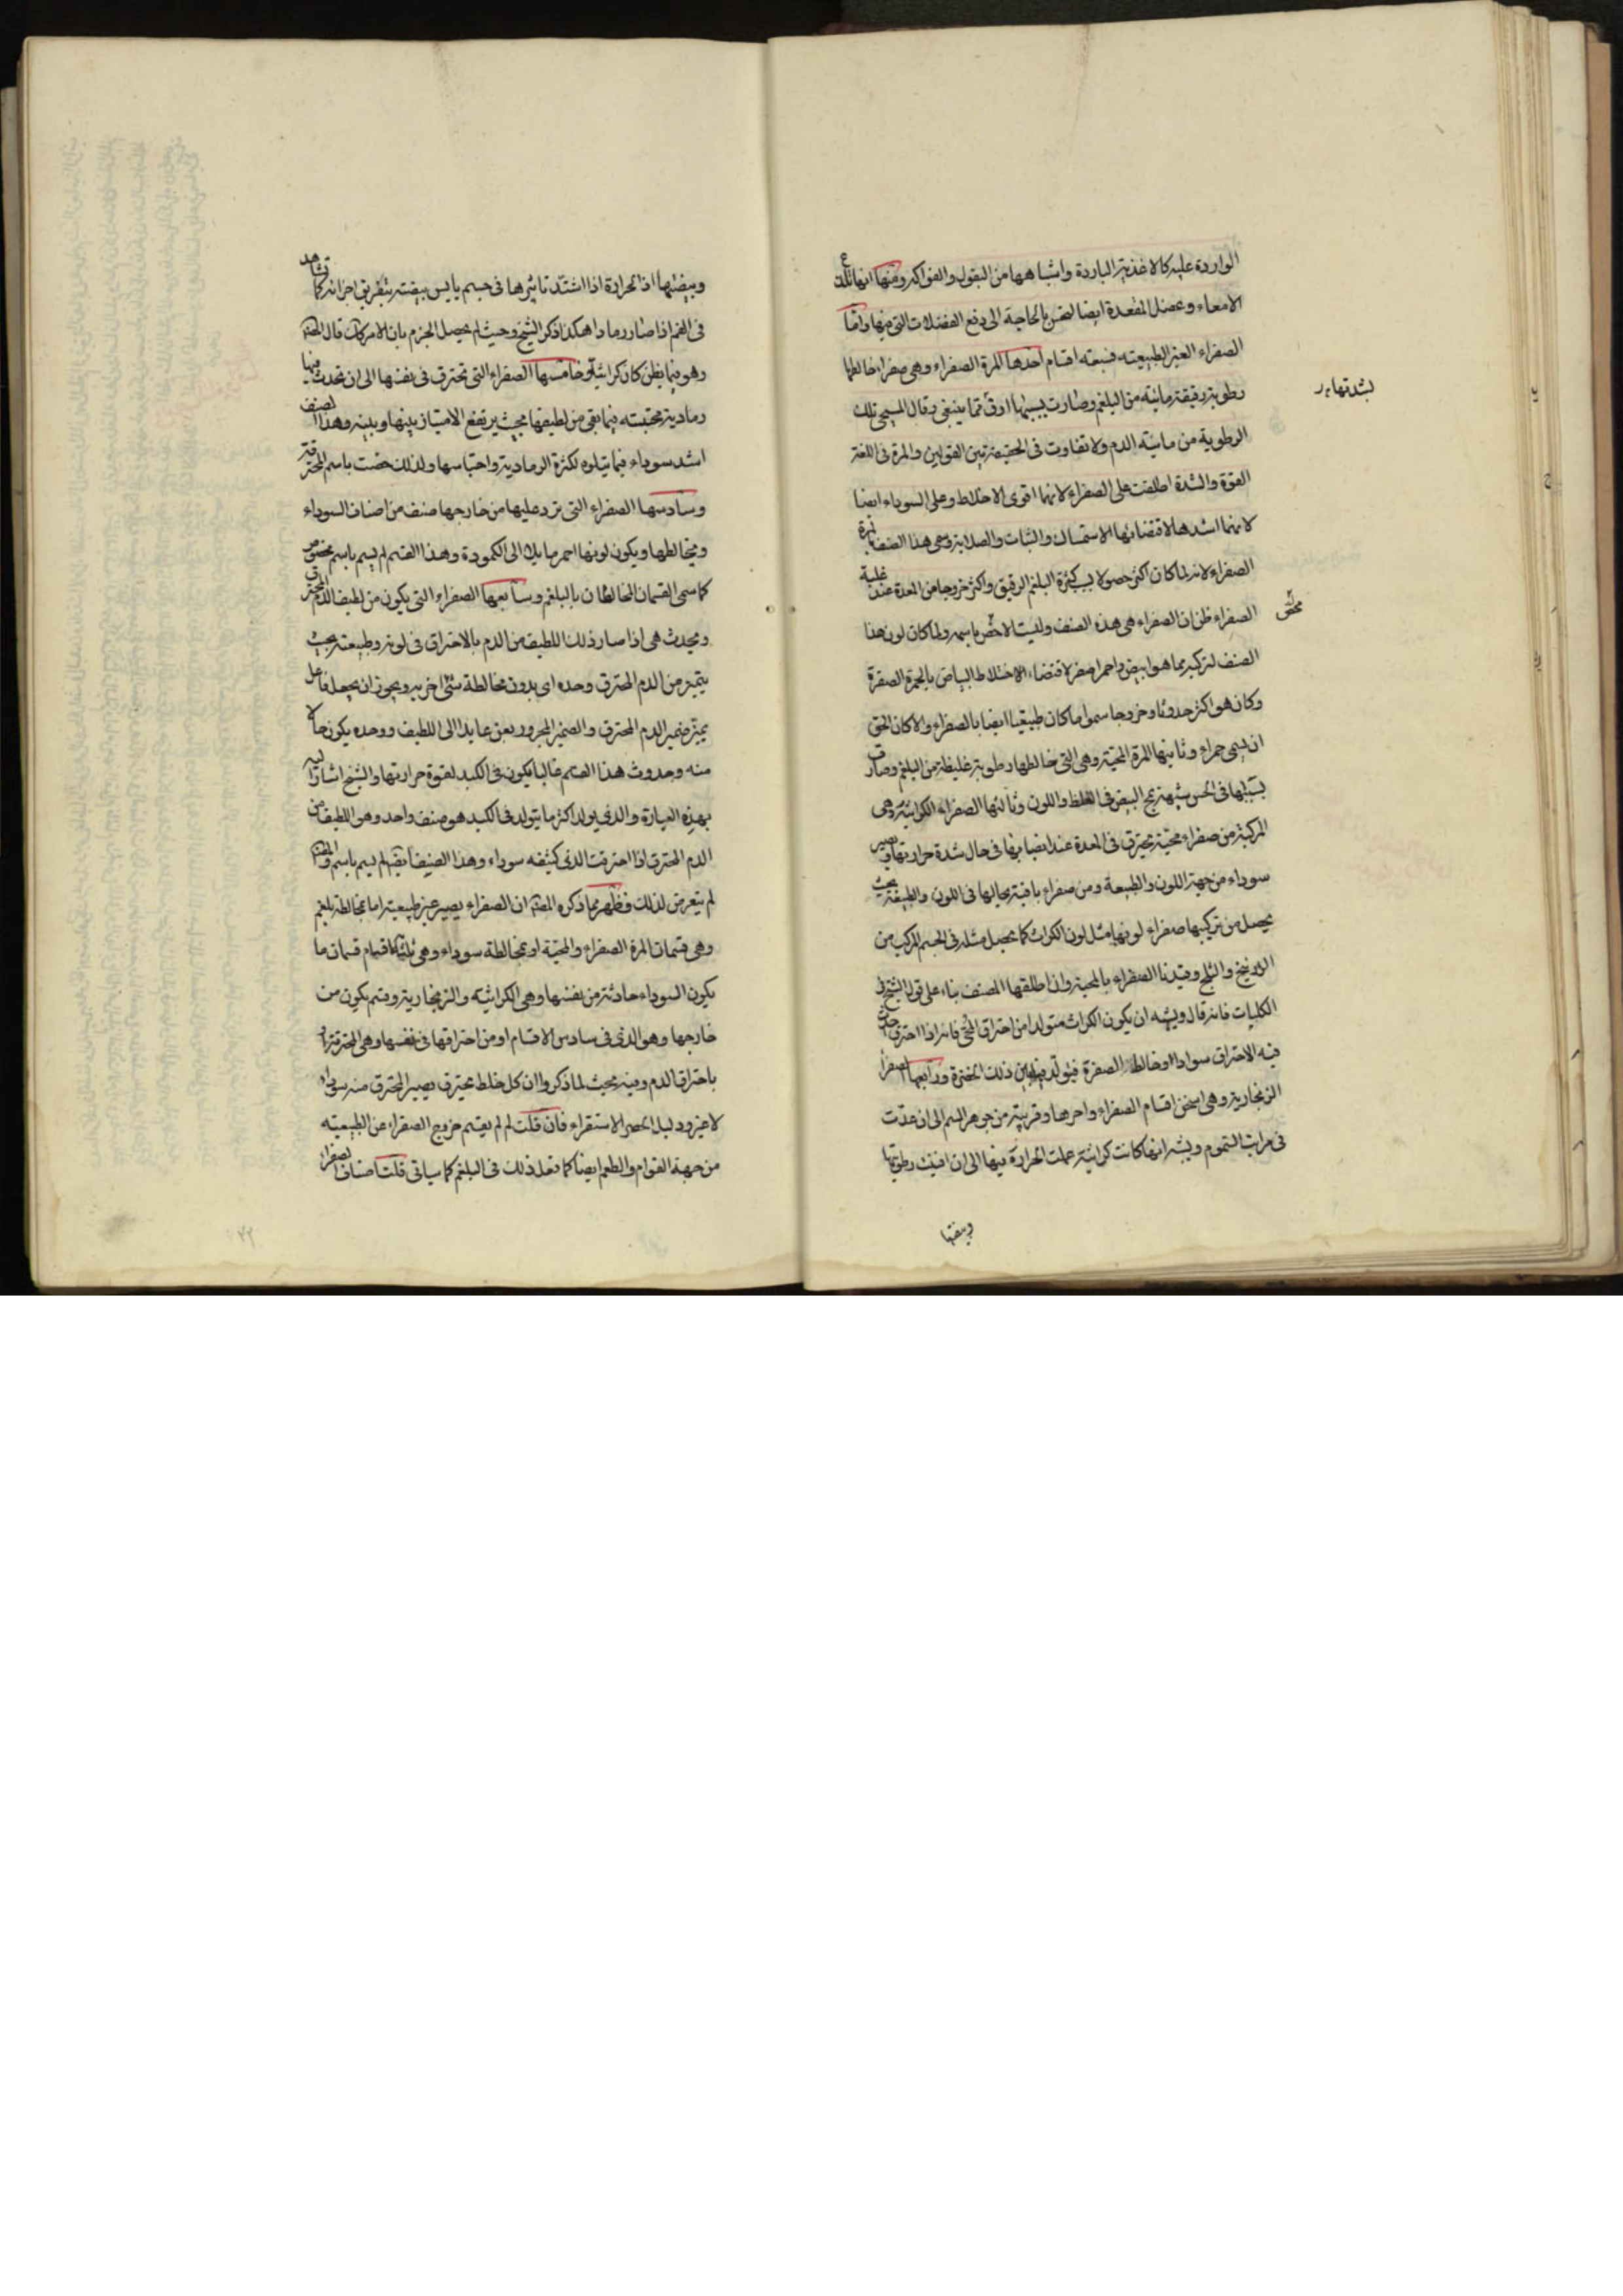 الواردة عليه كالاغذية الباردة واشباهها من البقول والفواكه ومنها انها تلذع
الامعاء وعضل المقعدة ايضا لتحس بالحاجة الى دفع الفضلات التى فيها واما
الصفراء الغير الطبيعيه فسبعة اقسام احدها المرة الصفراء وهى صفراء خالطها
لشدتها
رطوبة رقيقة مائية من البلغم وصارت بسببها ارق مما ينبغى وقال المسيحى تلك
الرطوبة من مائية الدم ولا تفاوت فى الحقيقة بين القولين والمرة فى اللغة
القوة والشدة اطلقت على الصفراء لانها اقوى الاخلاط وعلى السوداء ايضا
لانها اشدها لاقتضائها الاستمساك والثبات والصلابة وسمى هذا الصنف بمرة
الصفراء لانه لما كان اكثر حصولا بسبب كثرة البلغم الرقيق واكثر خروجا من المعدة عند غلبة
الصفراء ظن ان الصفراء هى هذه الصنف وليست الاخص باسمه ولما كان لون هذا
الصنف لتركبه مما هو ابيض واحمر اصفر لاقتضاء الاختلاط البياض بالحمرة الصفرة
وكان هو اكثر حدوثا وخروجا سموا ما كان طبيعيا ايضا بالصفراء والا كان الحق
ان يسمى حمراء وثانيها المرة المحية وهى التى خالطها رطوبة غليظة من البلغم وصارت
بسببها فى الحس شبهة بمح البيض فى الغلظ واللون وثالثها الصفراء الكراثية وهى
المركبة من صفراء محية تحترق فى المعدة عند انصبابها فى حال شدة حرارتها وتصير
سوداء من جهة اللون والطبيعة ومن صفراء باقية بحالها فى اللون والطبيعة بحيث
يحصل من تركيبها صفراء لونها مثل لون الكراث كما يحصل مثله فى الجسم المركب من
الزرنيخ والنيلج وقيدنا الصفراء بالمحية وان اطلقها المصنف بناء على قول الشيخ فى
الكليات فانه قال ويشبه ان يكون الكراث متولدا من احتراق المحى فانه اذا احترق احدث
فيه الاحتراق سوادا وخالط الصفرة فيتولد فيما بين ذلك الخضرة ورابعها الصفراء
الزنجارية وهى اسخن اقسام الصفراء واحرها وقريبة من جوهر السم الى ان عدت
فى مراتب السموم ويشبه انها كانت كراثية عملت الحرارة فيها الى ان افنيت رطوبتها
وبيضتها
وبيضتها اذ الحرارة اذا اشتد تاثيرها فى جسم يابس بيضته بتفريق اجزائه كما تشاهد
فى الفحم اذا صار رمادا هكذا ذكر الشيخ وحيث لم يحصل الجزم بان الامر كذلك قال المصنف
وهو فيما يظن كان كراثيا وخامسها الصفراء التى تحترق فى نفسها الى ان تحدث فيها
رمادية محتبسة فيما بقى من لطيفها بحيث يرتفع الامتياز بينها وبينه وهذا الصنف
اشد سوداء فيما يتلوه لكثرة الرمادية واحتباسها ولذلك خصت باسم المحترقة
وسادسها الصفراء التى ترد عليها من خارجها صنف من اصناف السوداء
ويخالطها ويكون لونها احمر مايل الى الكمودة وهذا القسم لم يسم باسم مخصوص
كما سمى القسمان المخالطان بالبلغم وسابعها الصفراء التى يكون من لطيف الدم المحترق
ويحدث هى اذا صار ذلك اللطيف من الدم بالاحتراق فى لونه وطبيعته بحيث
يتميز من الدم المحترق وحده اى بدون مخالطة شئ اخر به ويجوز ان يجعل فاعل
يميز ضمير الدم المحترق والضمير المجرور بعن عايدا الى اللطيف ووحده يكون حالا
منه وحدوث هذا القسم غالبا يكون فى الكبد لقوة حرارتها والشيخ اشار اليه
بهذه العبارة والذى يولد اكثر ما يتولد فى الكبد هو صنف واحد وهو اللطيف من
الدم المحترق اذا احترقت الذى كثيفه سوداء وهذا الصنف ايضا لم يسم باسم والمصنف
لم يتعرض لذلك فظهر مما ذكره المصنف ان الصفراء يصير غير طبيعية اما بمخالطة بلغم
وهى قسمان المرة الصفراء والمحية او بمخالطة سوداء وهى ثلثة اقسام قسمان ما
يكون السوداء حادثة من نفسها وهى الكراثية والزنجارية وقسم يكون من
خارجها وهو الذى فى سادس الاقسام او من احتراقها فى نفسها وهى المحترقة او
باحتراق الدم وفيه بحيث لما ذكروا ان كل خلط يحترق يصير المحترق منه سوداء
لا غير ودليل الحصر الاستقراء فان قلت لم لم يقسم خروج الصفراء عن الطبيعيه
من جهة القوام والطعم ايضا كما فعل ذلك فى البلغم كما سياتى قلت اصناف الصفراء